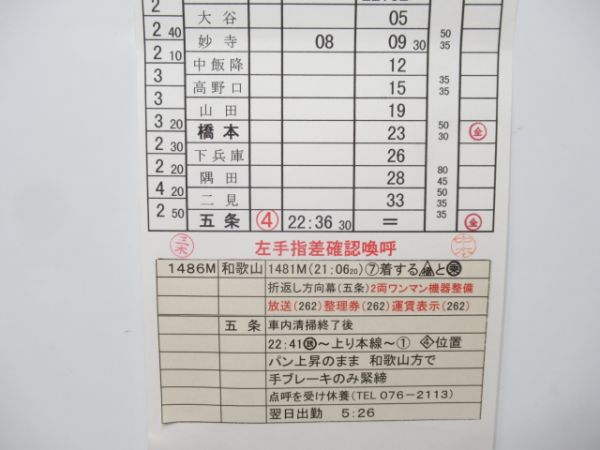 2
大谷 05
2 40 妙寺 08 09 30 50 35
2 10 中飯降 12
3 高野口 15 35 35
3 山田 19
3 20 橋本 23 50 30 全
2 30 下兵庫 26
2 20 隅田 28 80 45
4 20 二見 33 50 35
2 50 五条 ④ 22:36 30 = 35 全
左手指差確認喚呼
1486M 和歌山 1481M(21:06 20)⑦着する と乗
折返し方向幕(五条)2両ワンマン機器整備
放送(262)整理券(262)運賃表示(262)
五条 車内清掃終了後
22:41 ～上り本線～① ④位置
パン上昇のまま 和歌山方で
手ブレーキのみ緊締
点呼を受け休養(TEL 076-2113)
翌日出勤 5:26